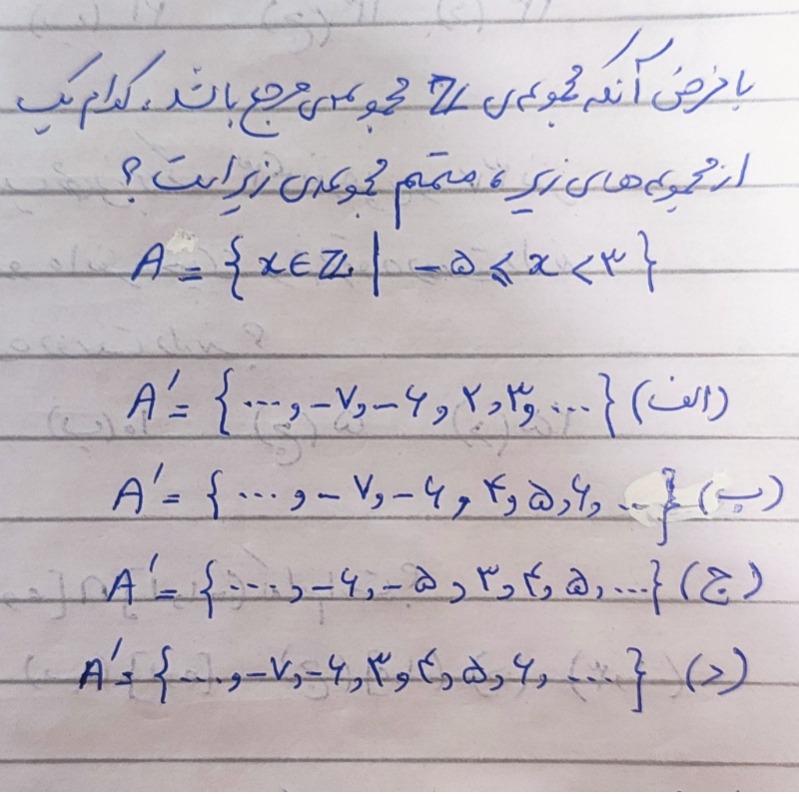 با فرض آنکه مجموعه‌ی Z مجموعه‌ی مرجع باشد، کدام یک
از مجموعه‌های زیر، متمّم مجموعه‌ی زیر است؟
A = { x ∈ Z | -۵ ⩽ x < ۳ }
الف) A' = { ..., -۷, -۶, ۲, ۳, ... }
ب) A' = { ..., -۷, -۶, ۴, ۵, ۶, ... }
ج) A' = { ..., -۶, -۵, ۳, ۴, ۵, ... }
د) A' = { ..., -۷, -۶, ۳, ۴, ۵, ۶, ... }